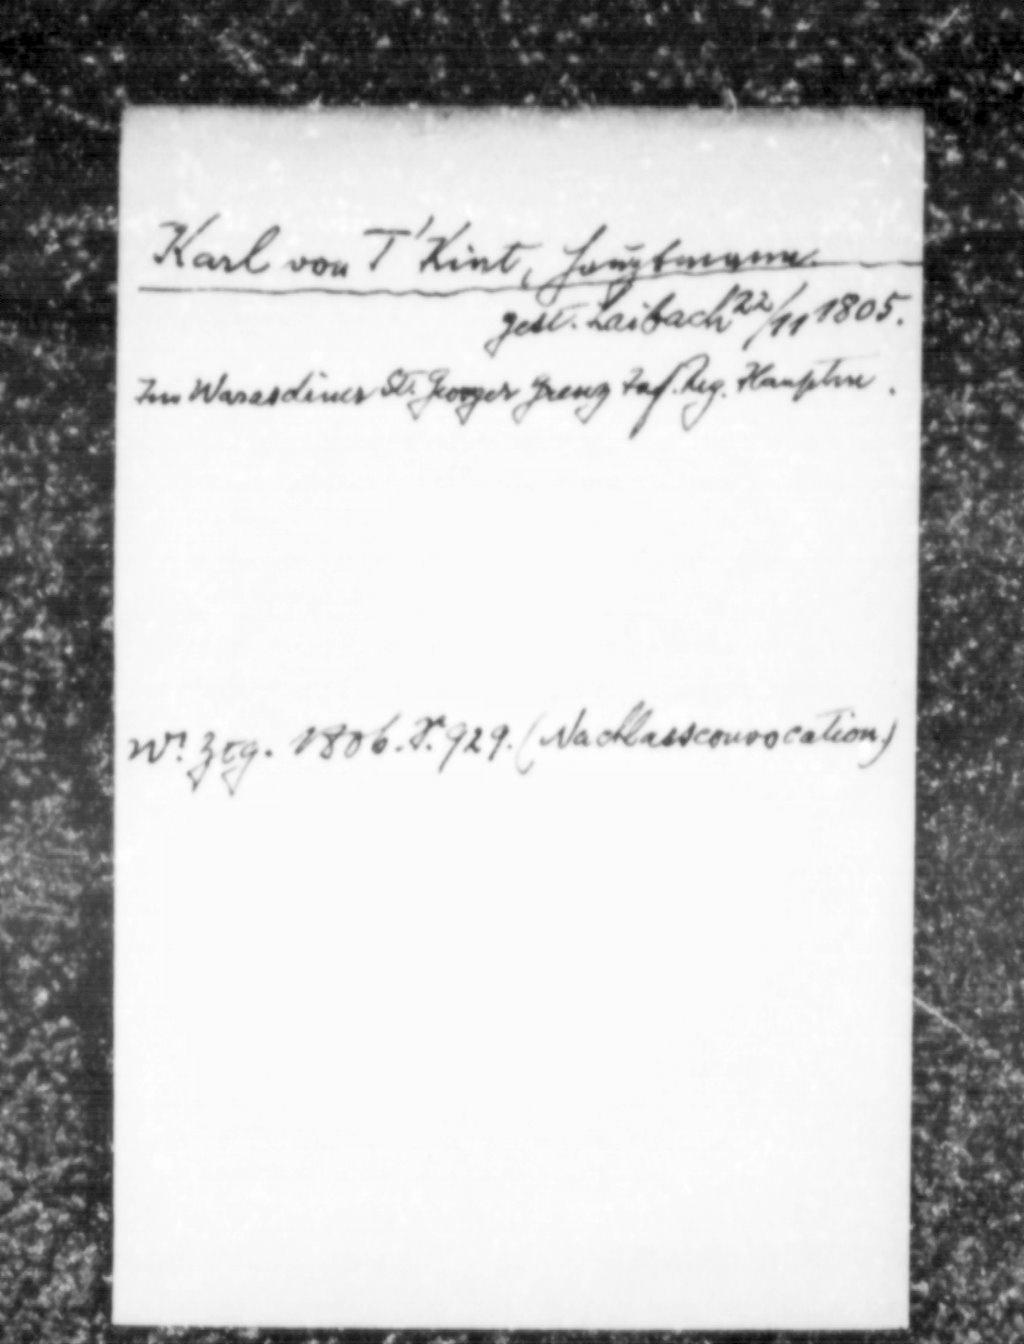 Karl von T'Kint, Hauptmann.
gest. Laibach 22/11 1805.
Im Warasdiner St. Georger Grenz Inf. Reg. Hauptm.
Wr. Ztg. 1806. S. 929. (Nachlassconvocation)